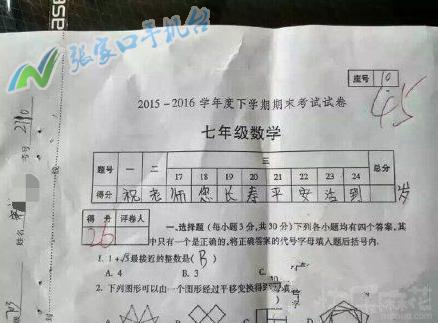 张家口手机台
座号 10
45
2015-2016学年度下学期期末考试试卷
七年级数学
题号 一 二 三 总分
17 18 19 20 21 22 23 24
得分 祝 老 师 您 长 寿 平 安 活 到 岁
得分 评卷人
26
一、选择题(每小题3分,共30分)下列各小题均有四个答案,其
中只有一个是正确的,将正确答案的代号字母填入题后括号内.
1. 1+√5最接近的整数是( B )
A. 4 B. 3 C.
2. 下列图形可以由一个图形经过平移变换得到
考号
姓名